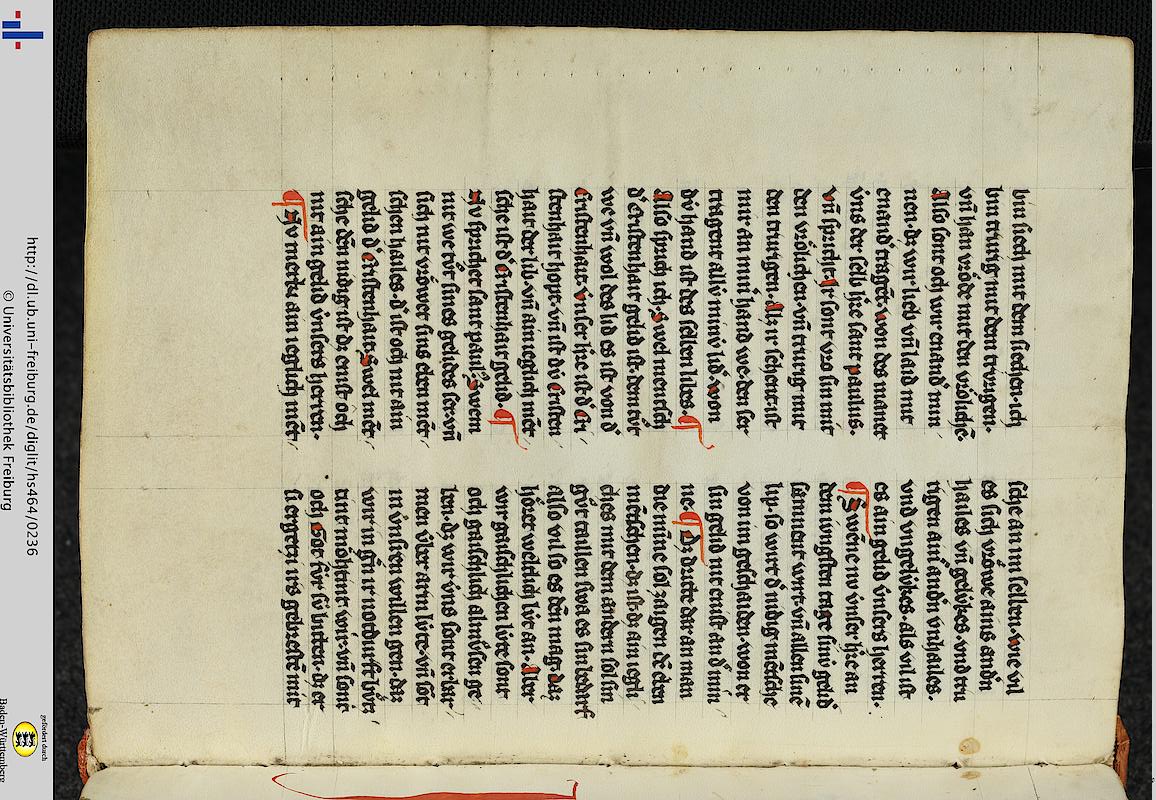 bin siech mit dem siechen. ich
bin trurig mit den trvrigen.
vn̄ han vröde mit den vrölichē.
Also sont och wir enand' min
nen. dc wir lieb vn̄ laid mit
enand' tragēt. won des manet
vns der selb h're sant paulus.
vn̄ spricht. Ir sont vro sin mit
den vrölichen. vn̄ trurig mit
den trurigen.
mir an mini hand we. den ser
tragent allv́ minv́ lid. won
dv́ hand ist des selben libes. ¶
Also sprich ich. swel mentsch
d' cristenhait gelid ist. dem tv̊t
we vn̄ wol des lid es ist. von d'
Cristenhait. vnser h're ist d' cri
stenhait hopt. vn̄ ist dv́ Cristen
hait der lib. vn̄ ain ieglich mēt
sche ist d' cristenhait gelid. ¶
Nv sprichet sant paulꝰ. Swem
nit we tv̊t sines gelides ser. vn̄
sich nit vröwet sins eben mēt
schen hailes. d' ist och nit ain
gelid d' Cristenhait. Swel mēt
sche dem nidig ist dc ernist och
nit ain gelid vnsers herren.
¶ Nv merkt. ain ieglich mēt
sche an im selben. wie vil
es sich vröwe ains andn
hailes vn̄ gelv́kes. vnd tru
rigen ain andn vnhailes.
vnd vngelv́kes. als vil ist
es ain gelid vnsers herren.
¶ Swēne nv vnser h're an
dem iungsten tage sinv́ gelid'
samnent wirt. vn̄ allen sinē
lip. so wirt d' nidig mētsche
von im geschaiden. won er
sin gelid nit enist an d' min
ne. ¶ Dc dritte dar an man
die minne sol zaigen. dē eben
mētschen. dc ist. dc ain iegli
ches mit dem andern sol sin
gv̊t taillen swa es sin bedarf
also vil so es denn mag. Daz
höret weltlich lv́te an. Aber
wir gaischlichen lv́te sont
och gaischlich almv̊sen ge
ben. dc wir vns sont erbar
men v́ber arm lv́te. vn̄ sōt
in vnsren willen gen. daz
wir in gn ir notdurft bv̊z
tint möhtint wir. vn̄ sont
och Got fv́r sv́ bitten. dc er
si ergetz irs gebresten mit